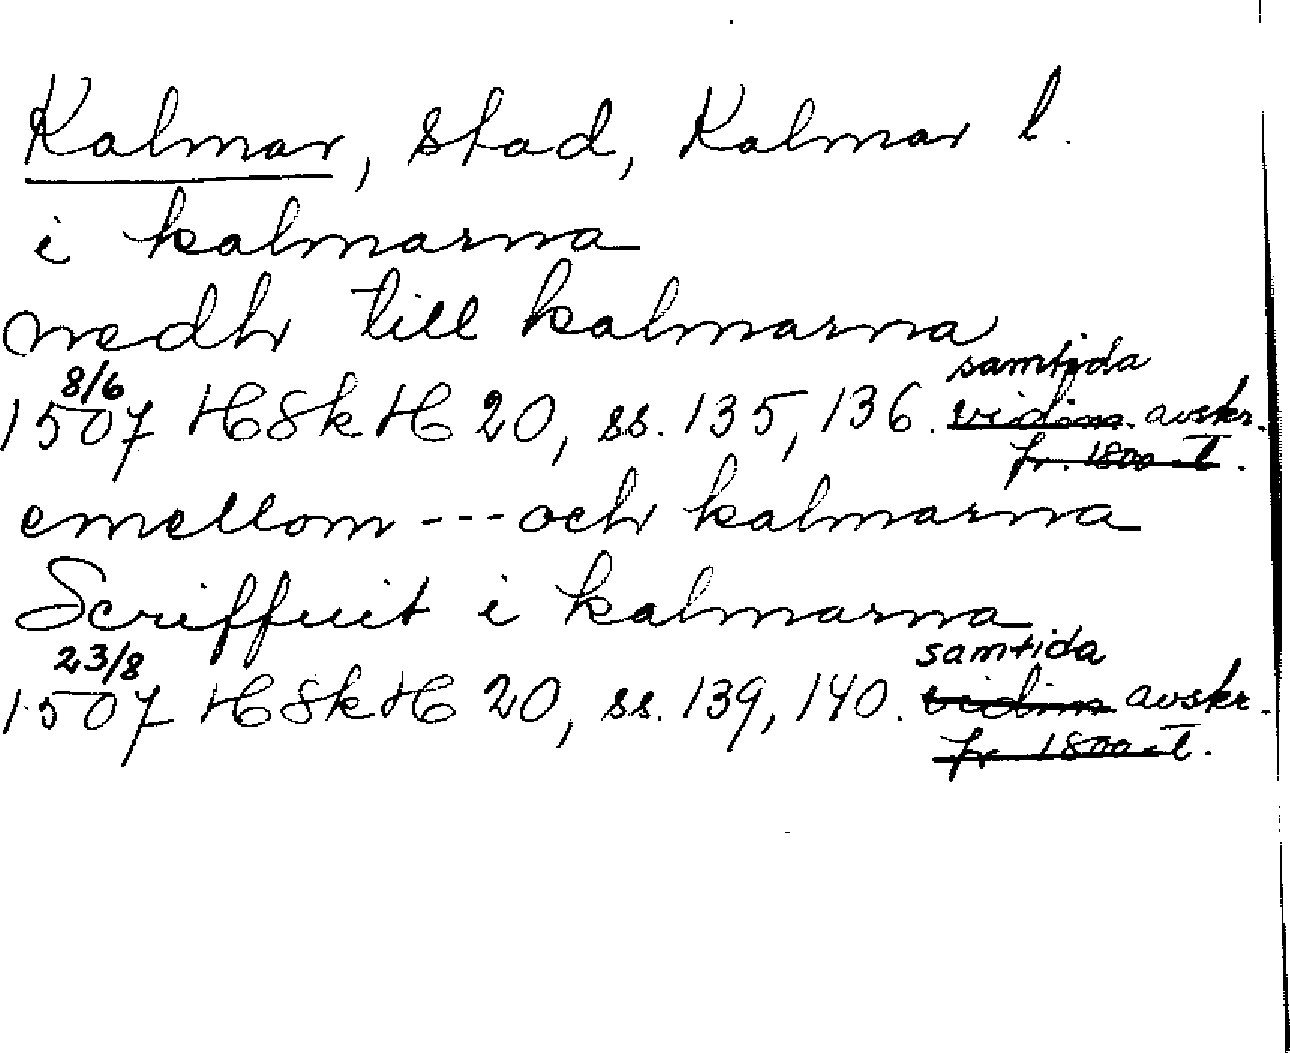 Kalmar, stad, Kalmar l.
i kalmarna
nedhr till kalmarna
8/6 samtida
1507 HSkH 20, ss. 135, 136. vidim. avskr.
fr. 1800-t.
emellom --- och kalmarna
Scriffuit i kalmarna
23/8 samtida
1507 HSkH 20, ss. 139, 140. vidim avskr.
fr 1800-t.